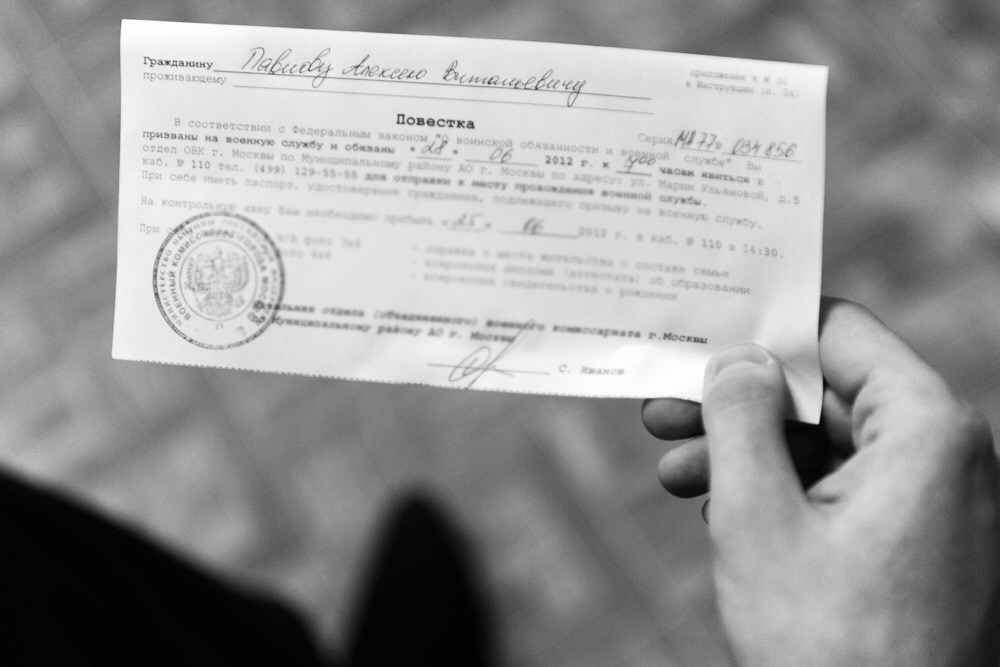 Гражданину Павлову Алексею Витальевичу
проживающему
Приложение к № 30
к Инструкции (п. 34)
Повестка
Серия МД 77 № 034856
В соответствии с Федеральным законом "О воинской обязанности и военной службе" Вы
призваны на военную службу и обязаны "28" 06 2012 г. к часам явиться в
отдел ОВК г. Москвы по Муниципальному району АО г. Москвы по адресу: ул. Марии Ульяновой, д.5
каб. № 110 тел. (499) 129-55-55 для отправки к месту прохождения военной службы.
При себе иметь паспорт, удостоверение гражданина, подлежащего призыву на военную службу.
На контрольную явку Вам необходимо прибыть "25" 06 2012 г. в каб. № 110 в 14:30.
При
Ч/Б фото 3х4 - справка с места жительства о составе семьи
фото 4х6 - ксерокопия диплома (аттестата) об образовании
- ксерокопия свидетельства о рождении
МИНИСТЕРСТВО ОБОРОНЫ РОССИЙСКОЙ
ВОЕННЫЙ КОМИССАРИАТ ГОРОДА МОСКВЫ
21
Начальник отдела (объединенного) военного комиссариата г.Москвы
Муниципальному району АО г. Москвы
С. Иванов